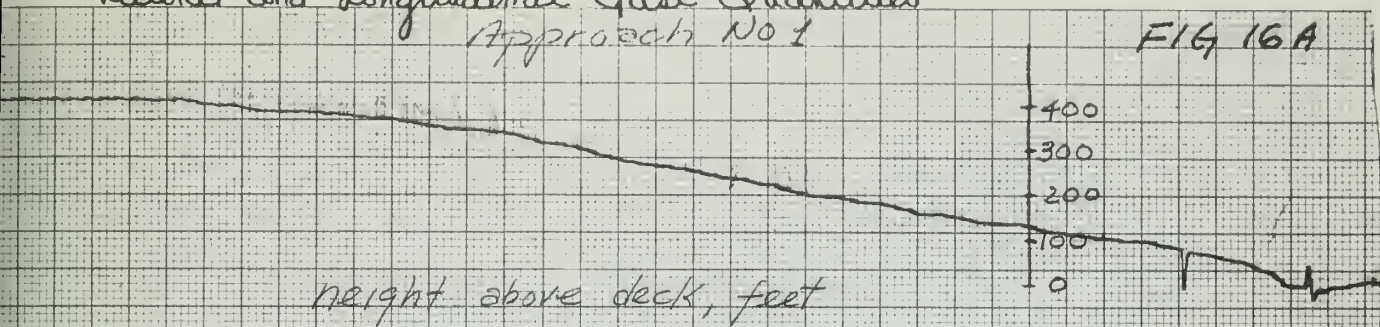 and Longitudinal Gust
Approach No 1
FIG 16A
400
300
200
100
0
height above deck, feet